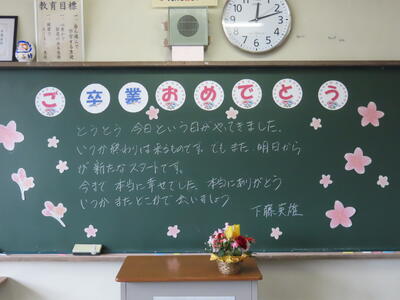 教育目標
ご卒業おめでとう
とうとう 今日という日がやってきました。
いつか終わりは来るものです。でもまた 明日から
が新たなスタートです。
今まで 本当に幸せでした。本当にありがとう
いつか またどこかで会いましょう
下藤英雄